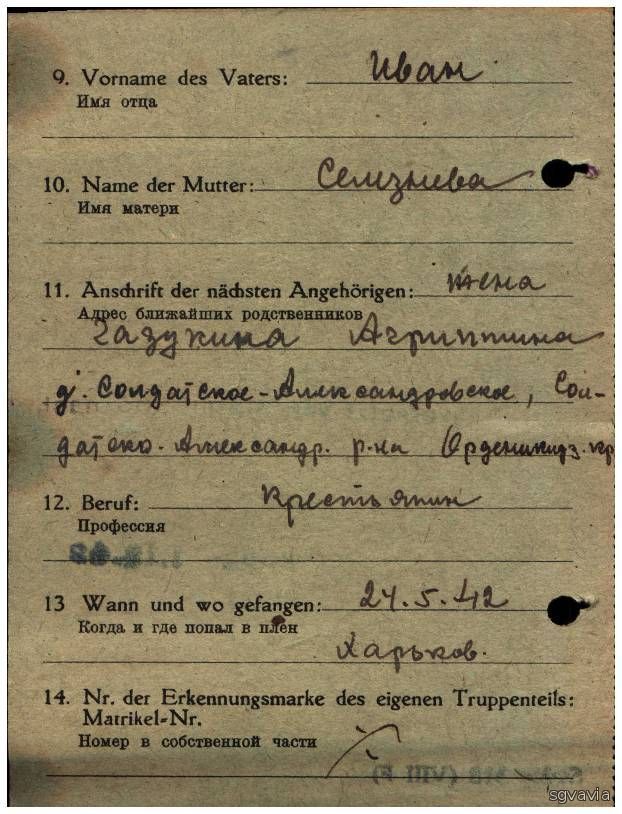 9. Vorname des Vaters: Иван
Имя отца
10. Name der Mutter: Селизнева
Имя матери
11. Anschrift der nächsten Angehörigen: жена
Адрес ближайших родственников
Газукина Агриппина
д. Солдатское-Александровское, Сол-
датско-Александр. р-на Орденикидз. кр
12. Beruf: Крестьянин
Профессия
13 Wann und wo gefangen: 24.5.42
Когда и где попал в плен
Харьков.
14. Nr. der Erkennungsmarke des eigenen Truppenteils:
Matrikel-Nr.
Номер в собственной части
(VIII F)
sgvavia